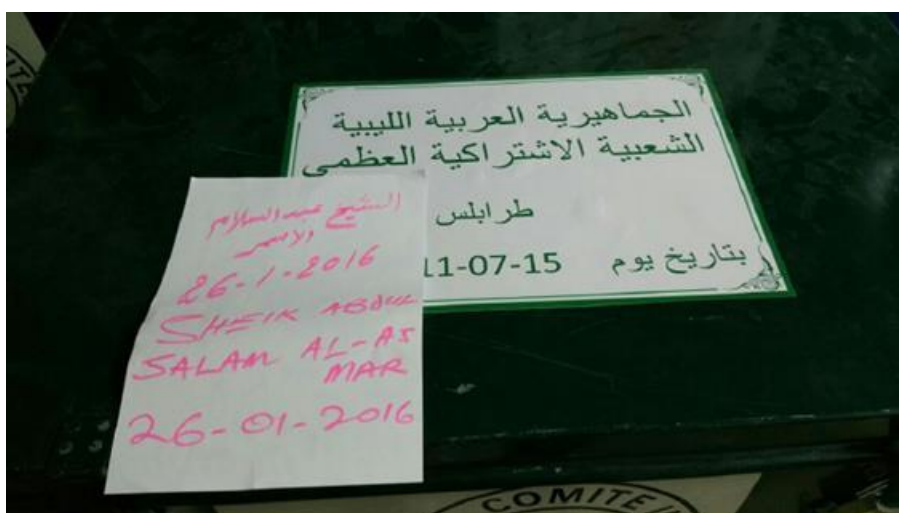 الجماهيرية العربية الليبية
الشعبية الاشتراكية العظمى
طرابلس
بتاريخ يوم 11-07-15
الشيخ عبد السلام
الاسمر
26-1-2016
SHEIK ABDUL
SALAM AL-AS
MAR
26-01-2016
COMITE